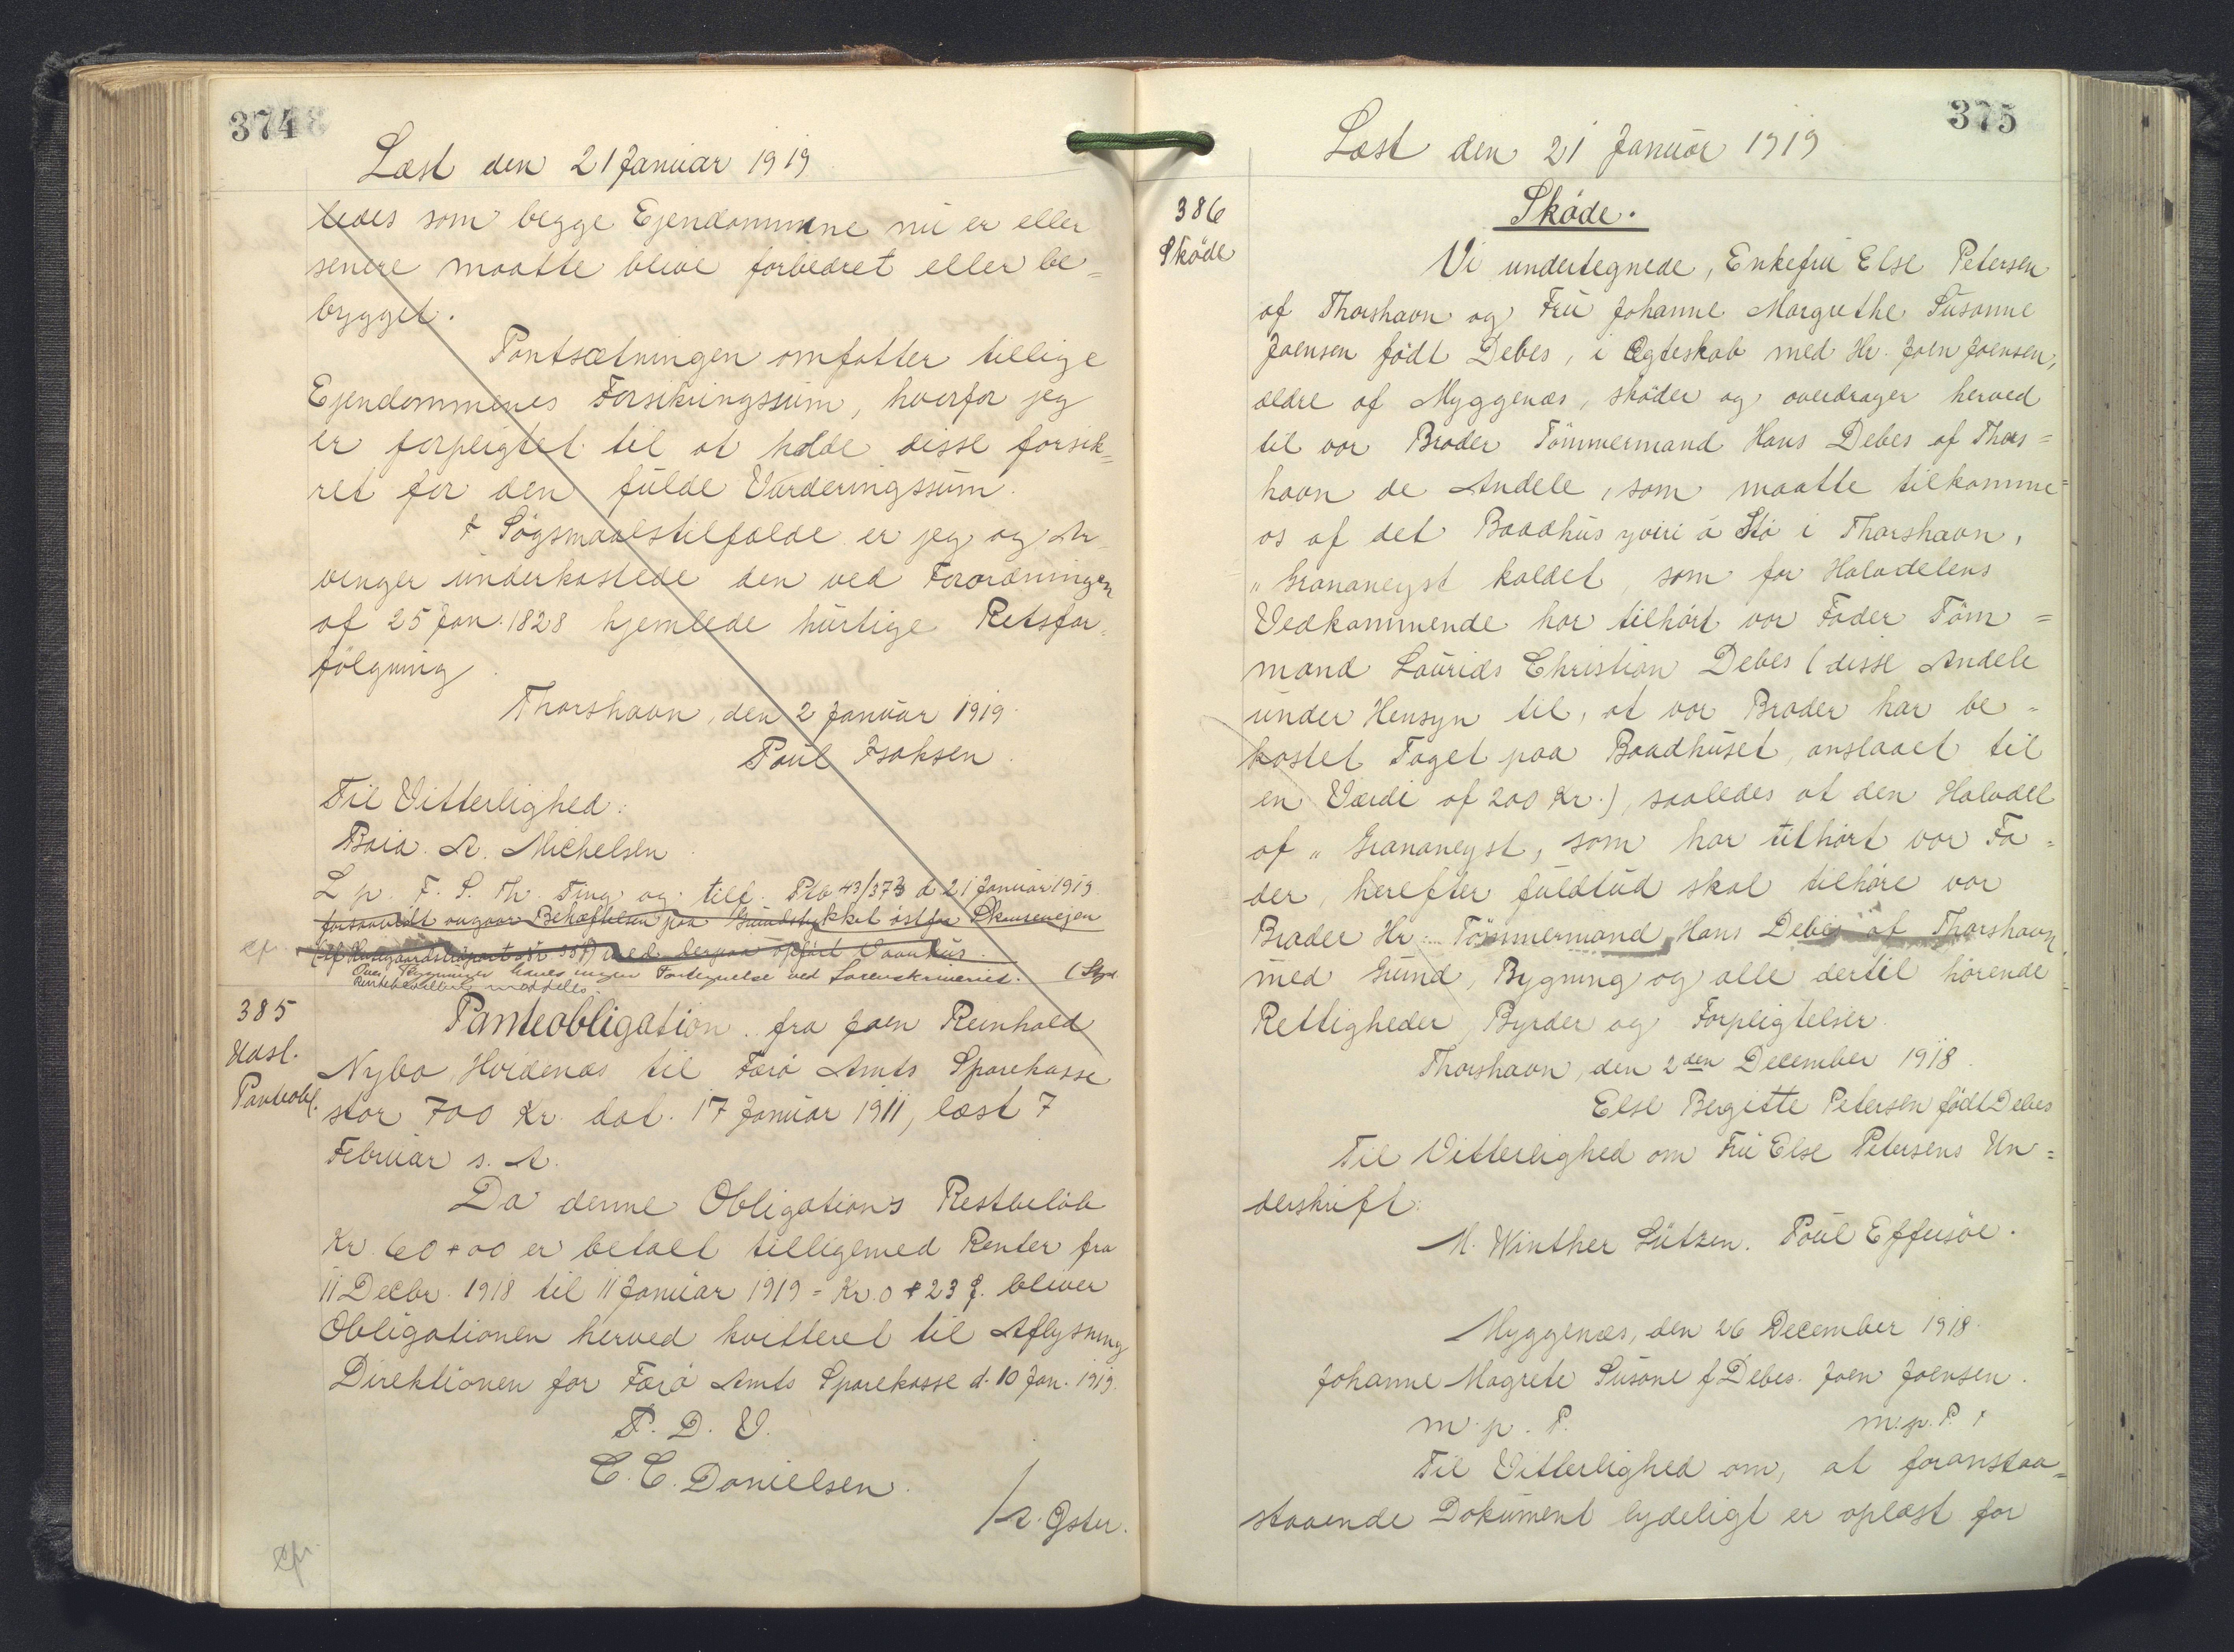 374
Læst den 21 Januar 1919
ledes som begge Ejendommene nu er eller
senere maatte blive forbedret eller be=
bygget.
Pantsætningen omfatter tillige
Ejendommenes Forsikringssum, hvorfor jeg
er forpligtet til at holde disse forsik=
ret for den fulde Vurderingssum.
I Søgsmaalstilfælde er jeg og Ar
vinger underkastede den ved Forordningen
af 25 Jan. 1828 hjemlede hurtige Retsfor=
følgning
Thorshavn, den 2 Januar 1919.
Poul Isaksen.
Til Vitterlighed:
A. Michelsen
L p. F. S. Th Ting og tilf. Ptb 43/373 d 21 Januar 1919
forsaavidt angaar Behæftelsen paa Grundstykket østfor
med derpaa opført Vaanhus.
Over Bygninger haves ingen Fortegnelse ved Sorenskriveriet.
meddeles.
385
Udsl.
Panteobl.
Panteobligation fra Joen Reinhold
Nybo, Hvidenæs til Færø Amts Sparekasse
stor 700 Kr. dat. 17 Januar 1911, læst 7
Februar s. A.
Da denne Obligations Restbeløb
Kr. 60+00 er betalt tilligemed Renter fra
11 Decbr. 1918 til 11 Januar 1919 = Kr. 0+23 Ø. bliver
Obligationen herved kvitteret til Aflysning
Direktionen for Færø Amts Sparekasse d. 10 Jan. 1919.
P. D. V.
C. C. Danielsen.
/ A. Øster.
375
Læst den 21 Januar 1919
386
Skøde
Skøde.
Vi undertegnede, Enkefru Else Petersen
af Thorshavn og Fru Johanne Margrethe Susanne
Joensen født Debes, i Ægteskab med Hr. Joen Joensen,
ældre af Myggenæs, skøder og overdrager herved
til vor Broder Tømmermand Hans Debes af Thors=
havn de Andele, som maatte tilkomme=
os af det Baadhus yviri á Stø i Thorshavn,
"Grananeyst kaldet, som for Halvdelens
Vedkommende har tilhørt vor Fader Töm=
mand Laurids Christian Debes (disse Andele
under Hensyn til, at vor Broder har be=
kostet Taget paa Baadhuset, anslaaet til
en Værdi af 200 Kr.), saaledes at den Halvdel
af "Grananeyst, som har tilhørt vor Fa=
der, herefter fuldtud skal tilhøre vor
Broder Hr. Tømmermand Hans Debes af Thorshavn
med Grund, Bygning og alle dertil hørende
Rettigheder Byrder og Forpligtelser.
Thorshavn, den 2den December 1918.
Else Bergitte Petersen født Debes
Til Vitterlighed om Fru Else Petersens Un=
derskrift:
M. Winther Lützen. Poul Effersøe.
Myggenæs, den 26 December 1918.
Johanne Magrete Susane f Debes. Joen Joensen.
m. p. P. m. p. P.
Til Vitterlighed om, at foranstaa=
staaende Dokument lydeligt er oplæst for